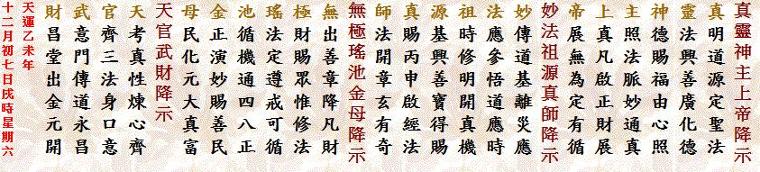 真靈神主上帝降示
真明道源定聖法
靈法興善廣化德
神德賜福由心照
主照法脈妙通真
上真凡啟正財展
帝展無為定有循
妙法祖源真師降示
妙傳道基離災應
法應參悟道應時
祖時修明開真機
源基興善寶得賜
真賜丙申啟經法
師法開章玄有奇
無極瑤池金母降示
無出善章降凡財
極財賜眾惟修法
瑤法定遵戒可循
池循機通四八正
金正演妙賜善民
母民化元大真富
天官武財降示
天考真性煉心齊
官齊三法身口意
武意門傳道永昌
財昌堂出金元開
天運乙未年
十二月初七日戌時星期六